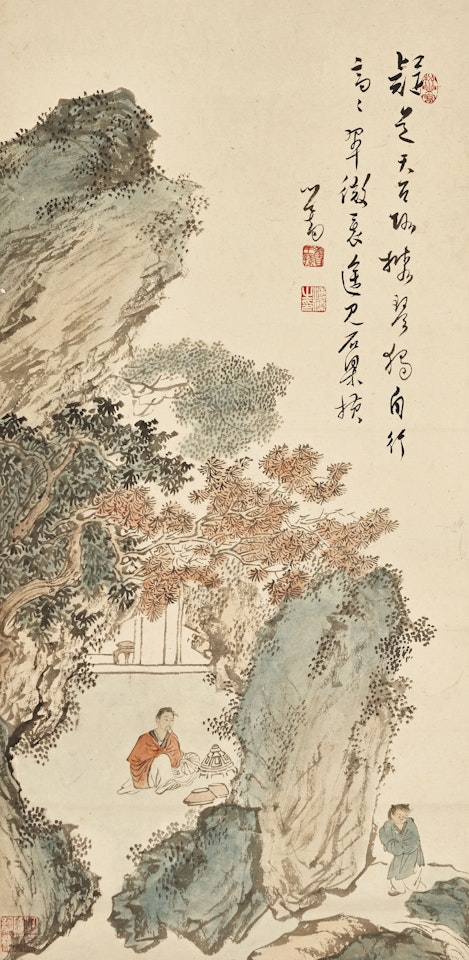 疑是天台路携琴獨自行
高〻翠微裏遙見石梁橫
心畬